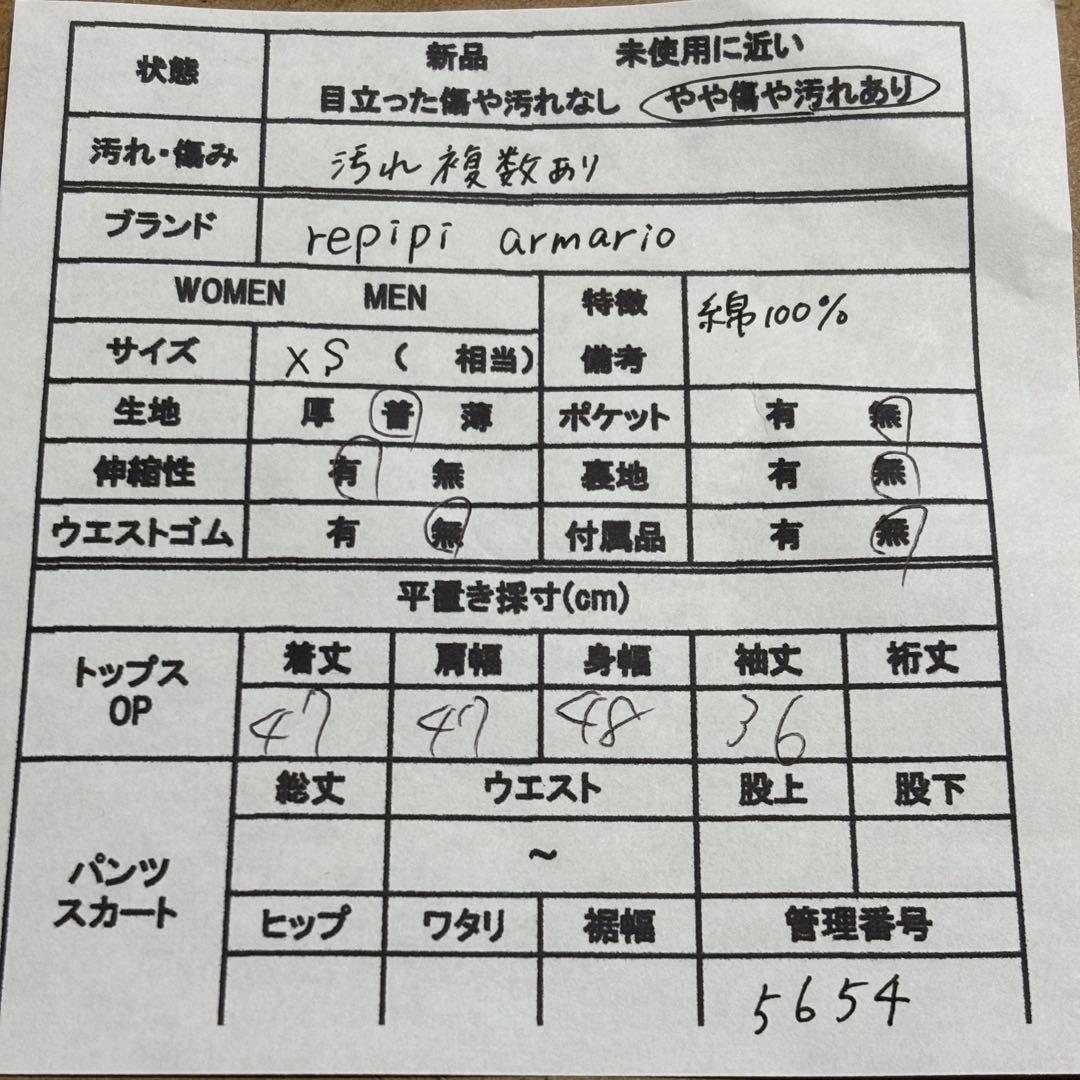 状態 新品 未使用に近い
目立った傷や汚れなし やや傷や汚れあり
汚れ・傷み 汚れ 複数あり
ブランド repipi armario
WOMEN MEN 特徴 綿100%
サイズ XS ( 相当) 備考
生地 厚 普 薄 ポケット 有 無
伸縮性 有 無 裏地 有 無
ウエストゴム 有 無 付属品 有 無
平置き採寸(cm)
トップス OP 着丈 肩幅 身幅 袖丈 裄丈
47 47 48 36
パンツ スカート 総丈 ウエスト 股上 股下
~
ヒップ ワタリ 裾幅 管理番号
5654